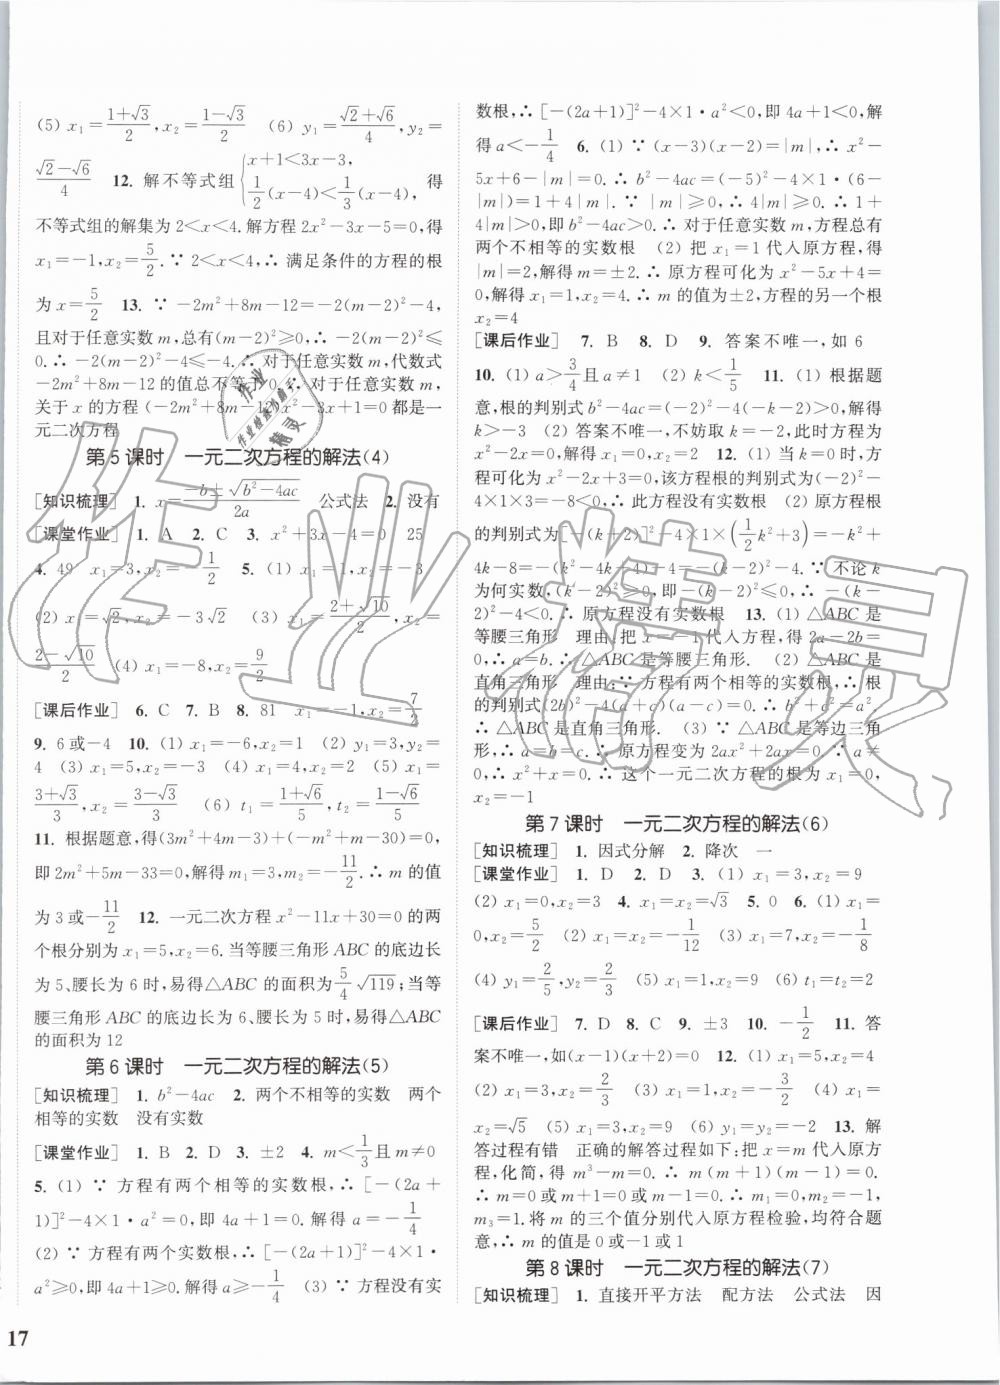 (5) x₁=(1+√3)/2,x₂=(1−√3)/2 (6) y₁=(√2+√6)/4,y₂=
(√2−√6)/4 12. 解不等式组{x+1<3x−3, 1/2(x−4)<1/3(x−4), 得
不等式组的解集为 2<x<4. 解方程 2x²−3x−5=0,得
x₁=−1,x₂=5/2. ∵ 2<x<4,∴ 满足条件的方程的根
为 x=5/2 13. ∵ −2m²+8m−12=−2(m−2)²−4,
且对于任意实数 m,总有(m−2)²≥0,∴ −2(m−2)²≤
0. ∴ −2(m−2)²−4≤−4. ∴ 对于任意实数 m,代数式
−2m²+8m−12 的值总不等于 0. ∴ 对于任意实数 m,
关于 x 的方程 (−2m²+8m−12)x²−3x+1=0 都是一
元二次方程
第 5 课时 一元二次方程的解法(4)
[知识梳理] 1. x=(−b±√(b²−4ac))/2a 公式法 2. 没有
[课堂作业] 1. A 2. C 3. x²+3x−4=0 25
4. 49 x₁=3,x₂=−1/2 5. (1) x₁=x₂=−3
(2) x₁=√2,x₂=−3√2 (3) x₁=(2+√10)/2,x₂=
(2−√10)/2 (4) x₁=−8,x₂=9/2
[课后作业] 6. C 7. B 8. 81 x₁=−1,x₂=7/2
9. 6 或−4 10. (1) x₁=−6,x₂=1 (2) y₁=3,y₂=
4 (3) x₁=5,x₂=−3 (4) x₁=x₂=2 (5) x₁=
(3+√3)/3,x₂=(3−√3)/3 (6) t₁=(1+√6)/5,t₂=(1−√6)/5
11. 根据题意,得(3m²+4m−3)+(−m²+m−30)=0,
即 2m²+5m−33=0,解得 m₁=3,m₂=−11/2. ∴ m 的值
为 3 或−11/2 12. 一元二次方程 x²−11x+30=0 的两
个根分别为 x₁=5,x₂=6. 当等腰三角形 ABC 的底边长
为 5、腰长为 6 时,易得△ABC 的面积为 5/4√119;当等
腰三角形 ABC 的底边长为 6、腰长为 5 时,易得△ABC
的面积为 12
第 6 课时 一元二次方程的解法(5)
[知识梳理] 1. b²−4ac 2. 两个不相等的实数 两个
相等的实数 没有实数
[课堂作业] 1. B 2. D 3. ±2 4. m<1/3且 m≠0
5. (1) ∵ 方程有两个相等的实数根,∴ [−(2a+
1)]²−4×1·a²=0,即 4a+1=0. 解得 a=−1/4
(2) ∵ 方程有两个实数根,∴ [−(2a+1)]²−4×1·
a²≥0,即 4a+1≥0. 解得 a≥−1/4 (3) ∵ 方程没有实
数根,∴ [−(2a+1)]²−4×1·a²<0,即 4a+1<0,解
得 a<−1/4 6. (1) ∵ (x−3)(x−2)=|m|,∴ x²−
5x+6−|m|=0. ∴ b²−4ac=(−5)²−4×1·(6−
|m|)=1+4|m|. ∵ |m|≥0,∴ 4|m|≥0. ∴ 1+
4|m|>0,即 b²−4ac>0. ∴ 对于任意实数 m,方程总有
两个不相等的实数根 (2) 把 x=1 代入原方程,得
|m|=2,解得 m=±2. ∴ 原方程可化为 x²−5x+4=
0,解得 x₁=1,x₂=4. ∴ m 的值为±2,方程的另一个根
x₂=4
[课后作业] 7. B 8. D 9. 答案不唯一,如 6
10. (1) a>3/4且 a≠1 (2) k<1/5 11. (1) 根据题
意,根的判别式 b²−4ac=(−2)²−4(−k−2)>0,解得
k>−3 (2) 答案不唯一,不妨取 k=−2,此时方程为
x²−2x=0,解得 x₁=0,x₂=2 12. (1) 当 k=0 时,方
程可化为 x²−2x+3=0,该方程根的判别式为(−2)²−
4×1×3=−8<0,∴ 此方程没有实数根 (2) 原方程根
的判别式为[−(k+2)]²−4×1×(1/2k²+3)=−k²+
4k−8=−(k²−4k+4)−4=−(k−2)²−4. ∵ 不论 k
为何实数,(k−2)²≥0,即−(k−2)²≤0,∴ −(k−
2)²−4<0. ∴ 原方程没有实数根 13. (1) △ABC 是
等腰三角形 理由:把 x=−1 代入方程,得 2a−2b=
0,∴ a=b. ∴ △ABC 是等腰三角形. (2) △ABC 是
直角三角形 理由:∵ 方程有两个相等的实数根,∴ 根
的判别式(2b)²−4(a+c)(a−c)=0. ∴ b²+c²=a².
∴ △ABC 是直角三角形 (3) ∵ △ABC 是等边三角
形,∴ a=b=c. ∴ 原方程变为 2ax²+2ax=0. ∵ a≠
0,∴ x²+x=0. ∴ 这个一元二次方程的根为 x₁=0,
x₂=−1
第 7 课时 一元二次方程的解法(6)
[知识梳理] 1. 因式分解 2. 降次 一
[课堂作业] 1. D 2. D 3. (1) x₁=3,x₂=9
(2) x₁=0,x₂=3 4. x₁=x₂=√3 5. 0 6. (1) x₁=
0,x₂=5/2 (2) x₁=x₂=−1/12 (3) x₁=7,x₂=−1/8
(4) y₁=2/5,y₂=2/3 (5) x₁=1,x₂=9 (6) t₁=t₂=2
[课后作业] 7. D 8. C 9. ±3 10. −1/2 11. 答
案不唯一,如(x−1)(x+2)=0 12. (1) x₁=5,x₂=4
(2) x₁=3,x₂=2/3 (3) x₁=1,x₂=−3/2 (4) x₁=
x₂=√5 (5) x₁=3,x₂=9 (6) y₁=y₂=−2 13. 解
答过程有错 正确的解答过程如下:把 x=m 代入原方
程,化简,得 m³−m=0. ∴ m(m+1)(m−1)=0.
∴ m=0 或 m+1=0 或 m−1=0. ∴ m₁=0,m₂=−1,
m₃=1. 将 m 的三个值分别代入原方程检验,均符合题
意,∴ m 的值是 0 或−1 或 1
第 8 课时 一元二次方程的解法(7)
[知识梳理] 1. 直接开平方法 配方法 公式法 因
17
作业精灵